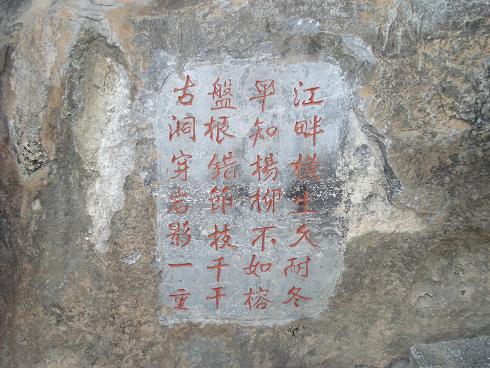 江畔生久耐冬
早知楊柳不如榕
盤根錯節枝千干
古洞穿岩影一重